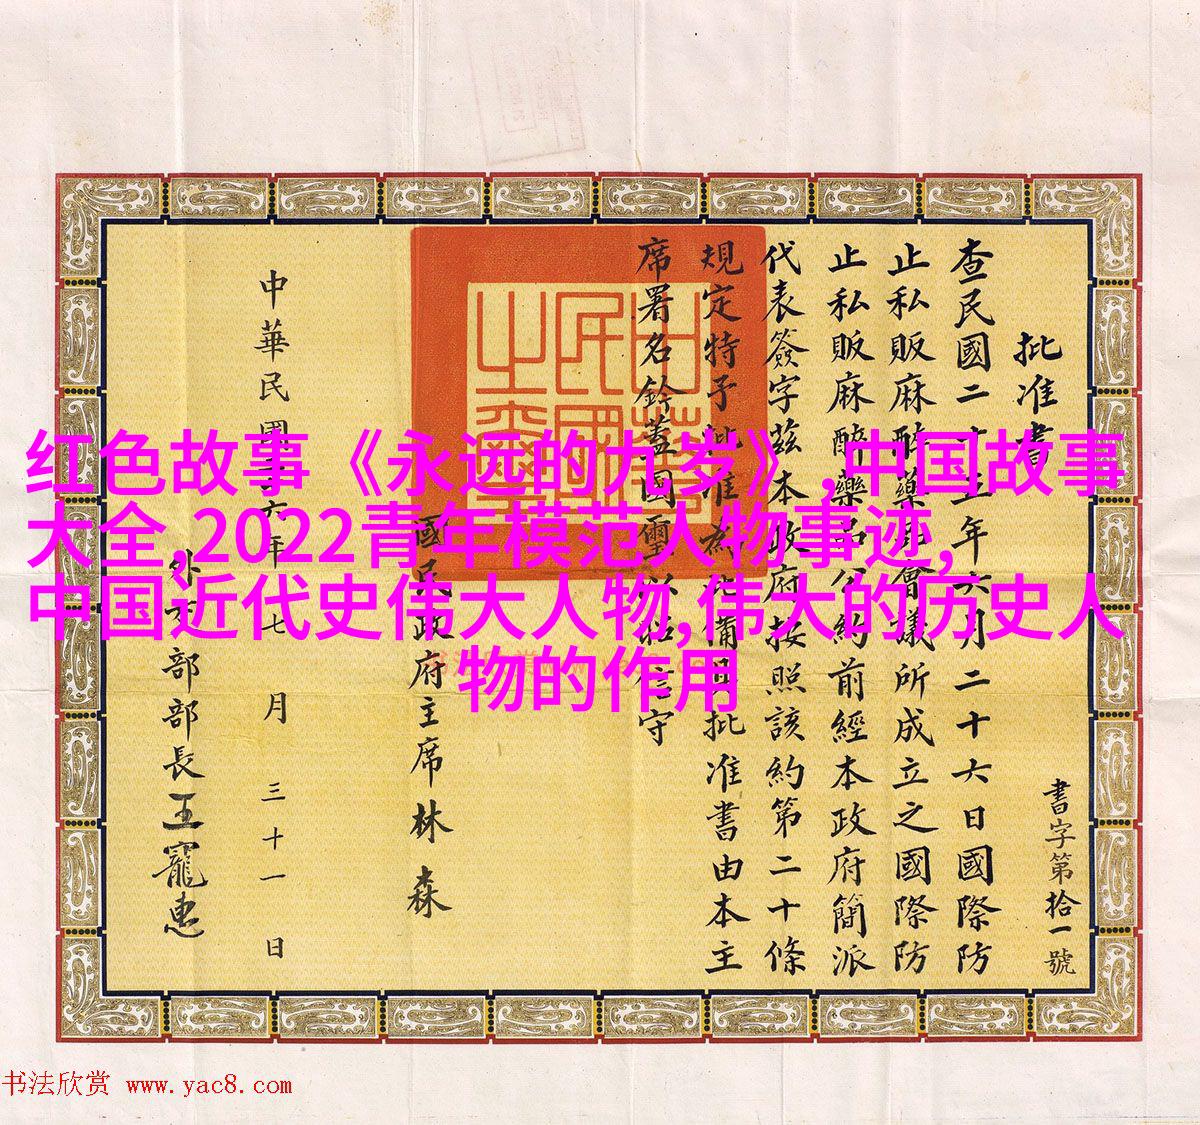 红色故事《永远的九岁》,中国故事
大全,2022青年模范人物事迹,
中国近代史伟大人物,伟大的历史人
物的作用
書字第拾一號
批准書
查民國二十五年六月二十六日國際防
止私販麻醉藥品會議所成立之國際防
止私販麻醉藥品公約前經本政府簡派
代表簽字茲本政府按照該約第二十條
規定特予批准為此備具批准書由本主
席署名鈐蓋國璽以昭信守
國民政府主席林森
中華民國二十六年七月三十一日
外交部部長王寵惠
中華民國之璽
书法欣赏 www.yac8.com